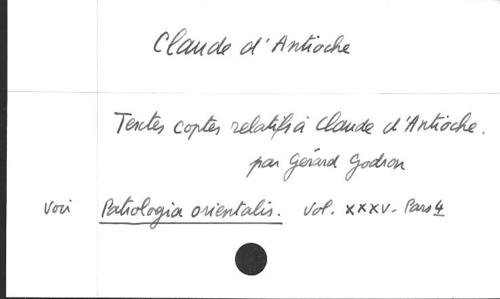 Claude d'Antioche
Textes coptes relatifs à Claude d'Antioche.
par Gérard Godron
Voir Patrologia orientalis. Vol. XXXV. Pars 4